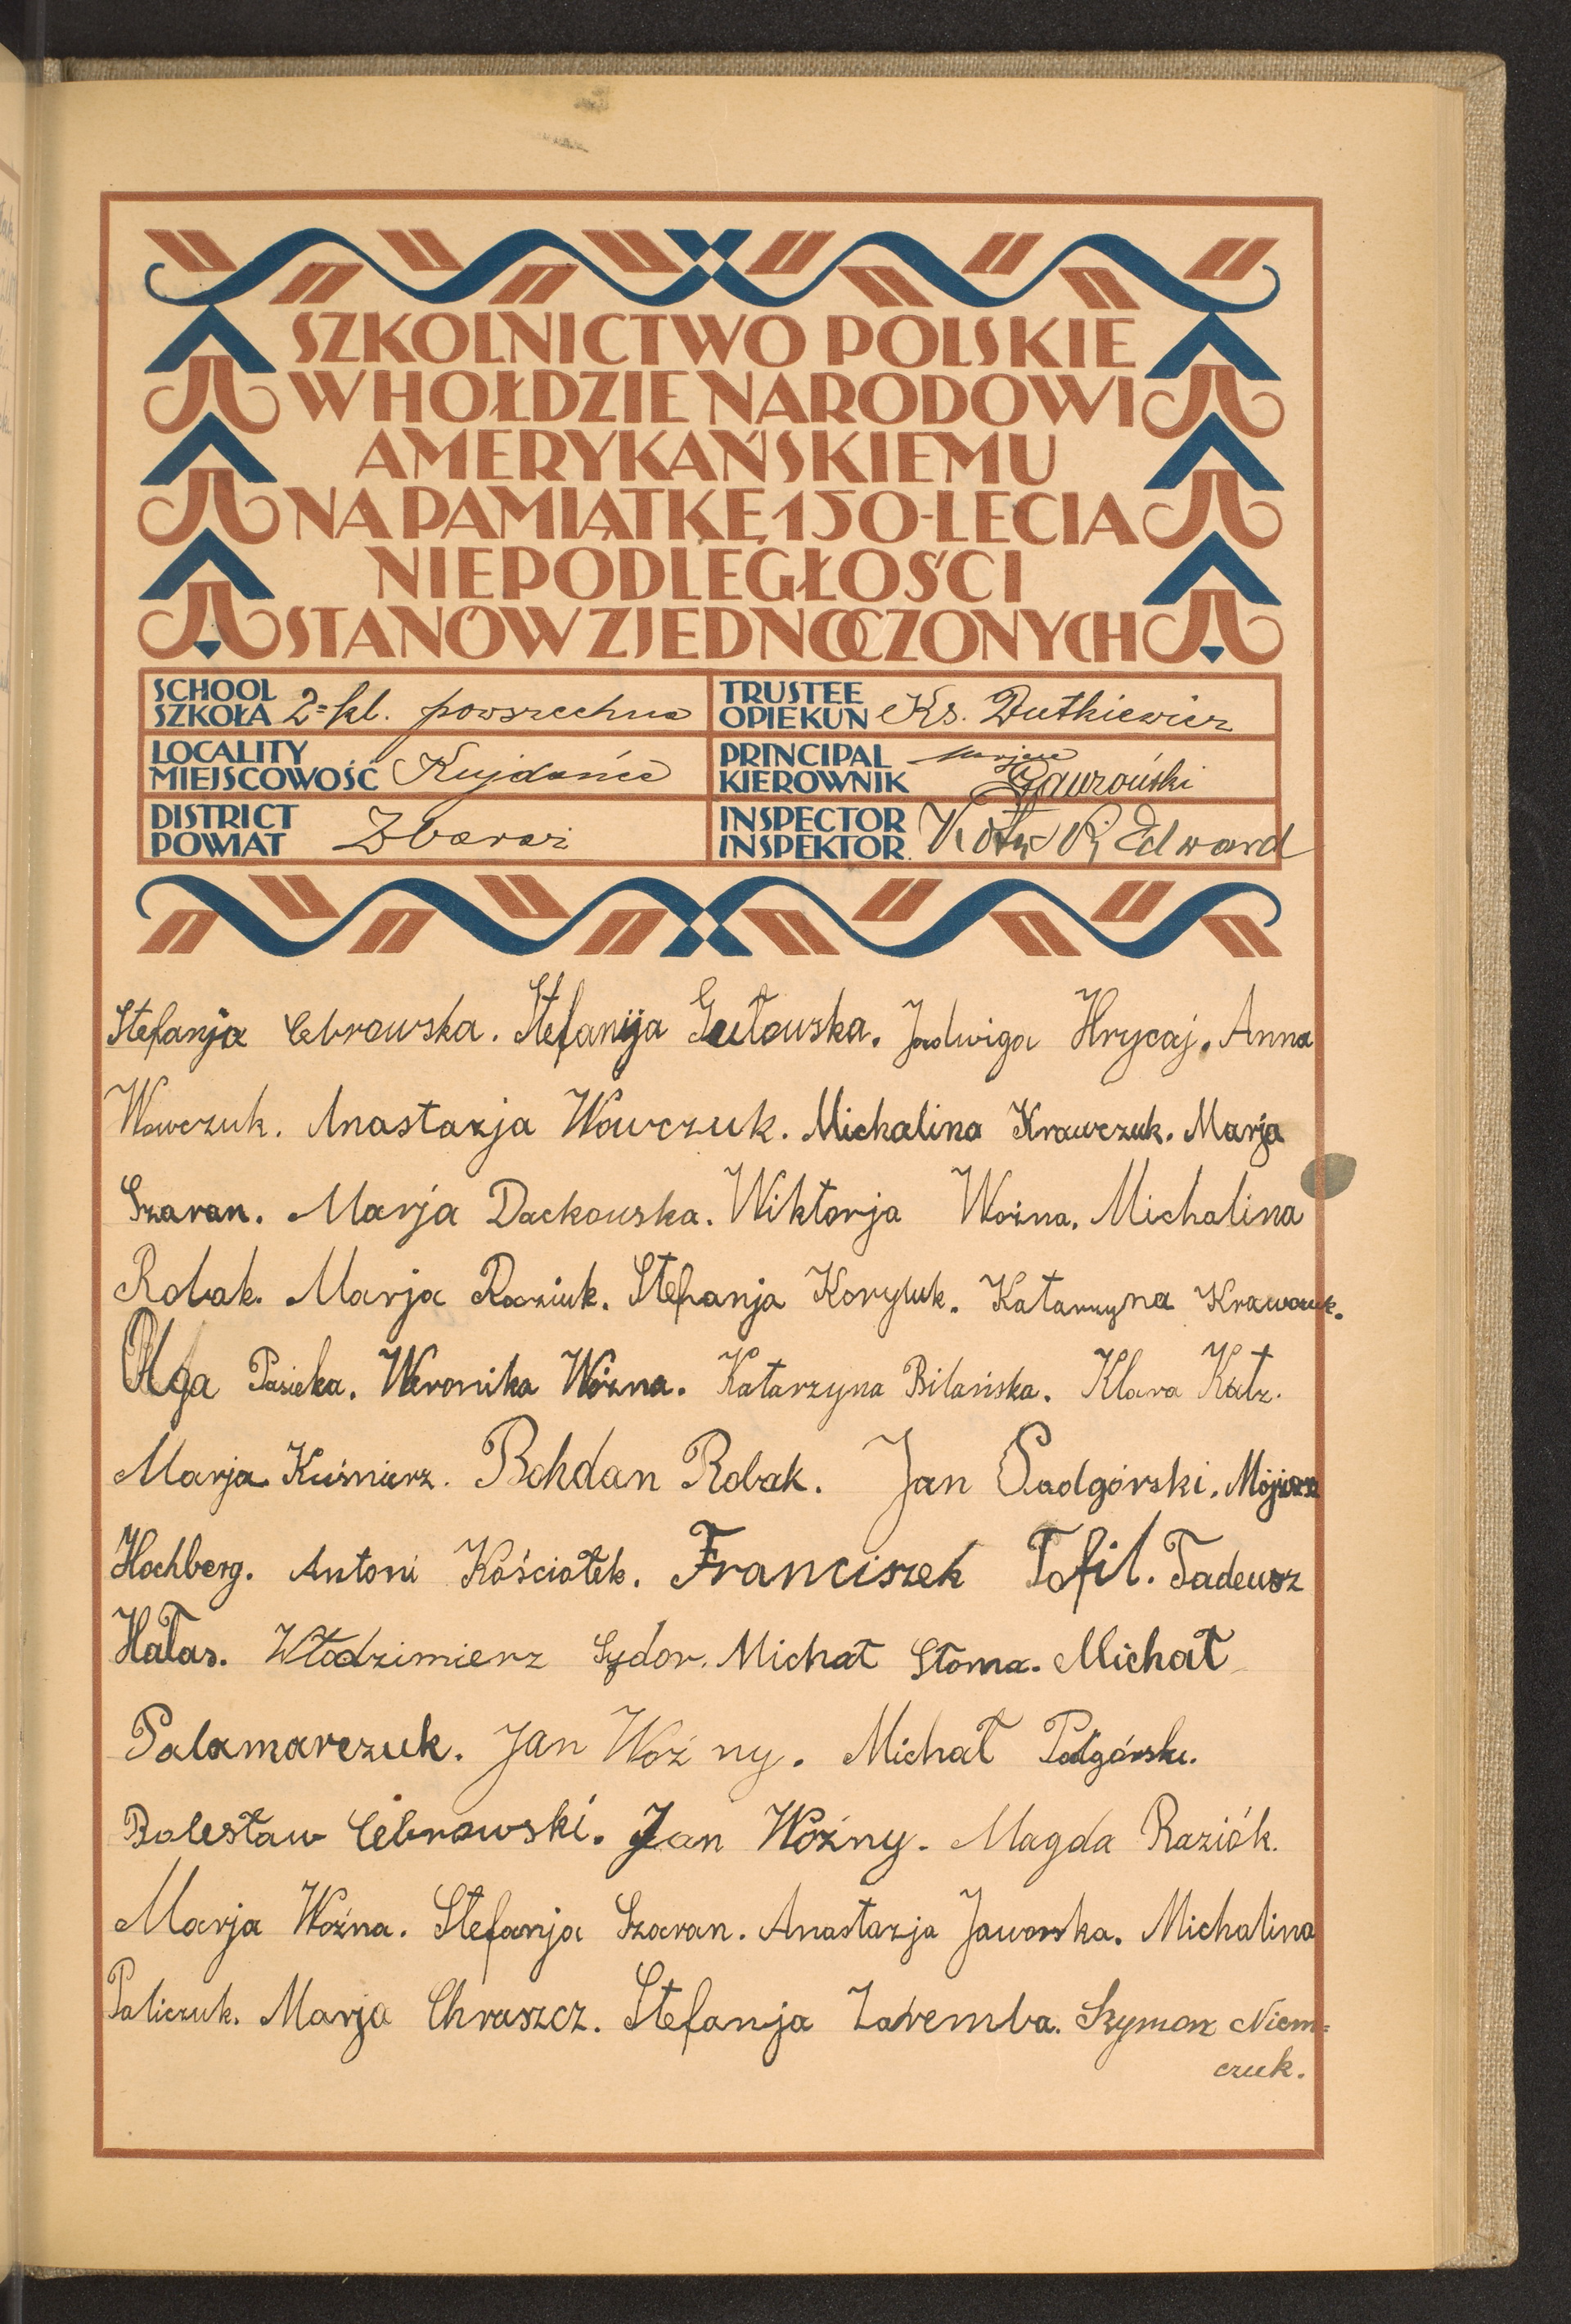 SZKOLNICTWO POLSKIE
W HOŁDZIE NARODOWI
AMERYKAŃSKIEMU
NA PAMIĄTKĘ 150-LECIA
NIEPODLEGŁOŚCI
STANÓW ZJEDNOCZONYCH
SCHOOL
SZKOŁA 2=kl. powszechna
TRUSTEE
OPIEKUN Ks. Dutkiewicz
LOCALITY
MIEJSCOWOŚĆ Kujdańce
PRINCIPAL
KIEROWNIK Gawroński
DISTRICT
POWIAT Zbaraż
INSPECTOR
INSPEKTOR Edward
Stefanja Cebrowska. Stefanija Gutowska. Jadwiga Hrycaj. Anna
Wowczuk. Anastazja Wowczuk. Michalina Krawczuk. Marja
Szaran. Marja Dackowska. Wiktorja Woźna. Michalina
Robak. Marja Raziuk. Stefanja Koryluk. Katarzyna Krawczuk.
Olga Pasieka. Weronika Woźna. Katarzyna Bilańska. Klara Katz.
Marja Kuśnierz. Bohdan Robak. Jan Padgórski. Mojżesz
Hochberg. Antoni Kościołek. Franciszek Tofil. Tadeusz
Hałas. Włodzimierz Sydor. Michał Słoma. Michał
Palamarczuk. Jan Woźny. Michał Podgórski.
Bolesław Cebrowski. Jan Woźny. Magda Raziók.
Marja Woźna. Stefanja Szaran. Anastazja Jaworska. Michalina
Paliczuk. Marja Chraszcz. Stefanja Zaremba. Szymon Niem=
czuk.